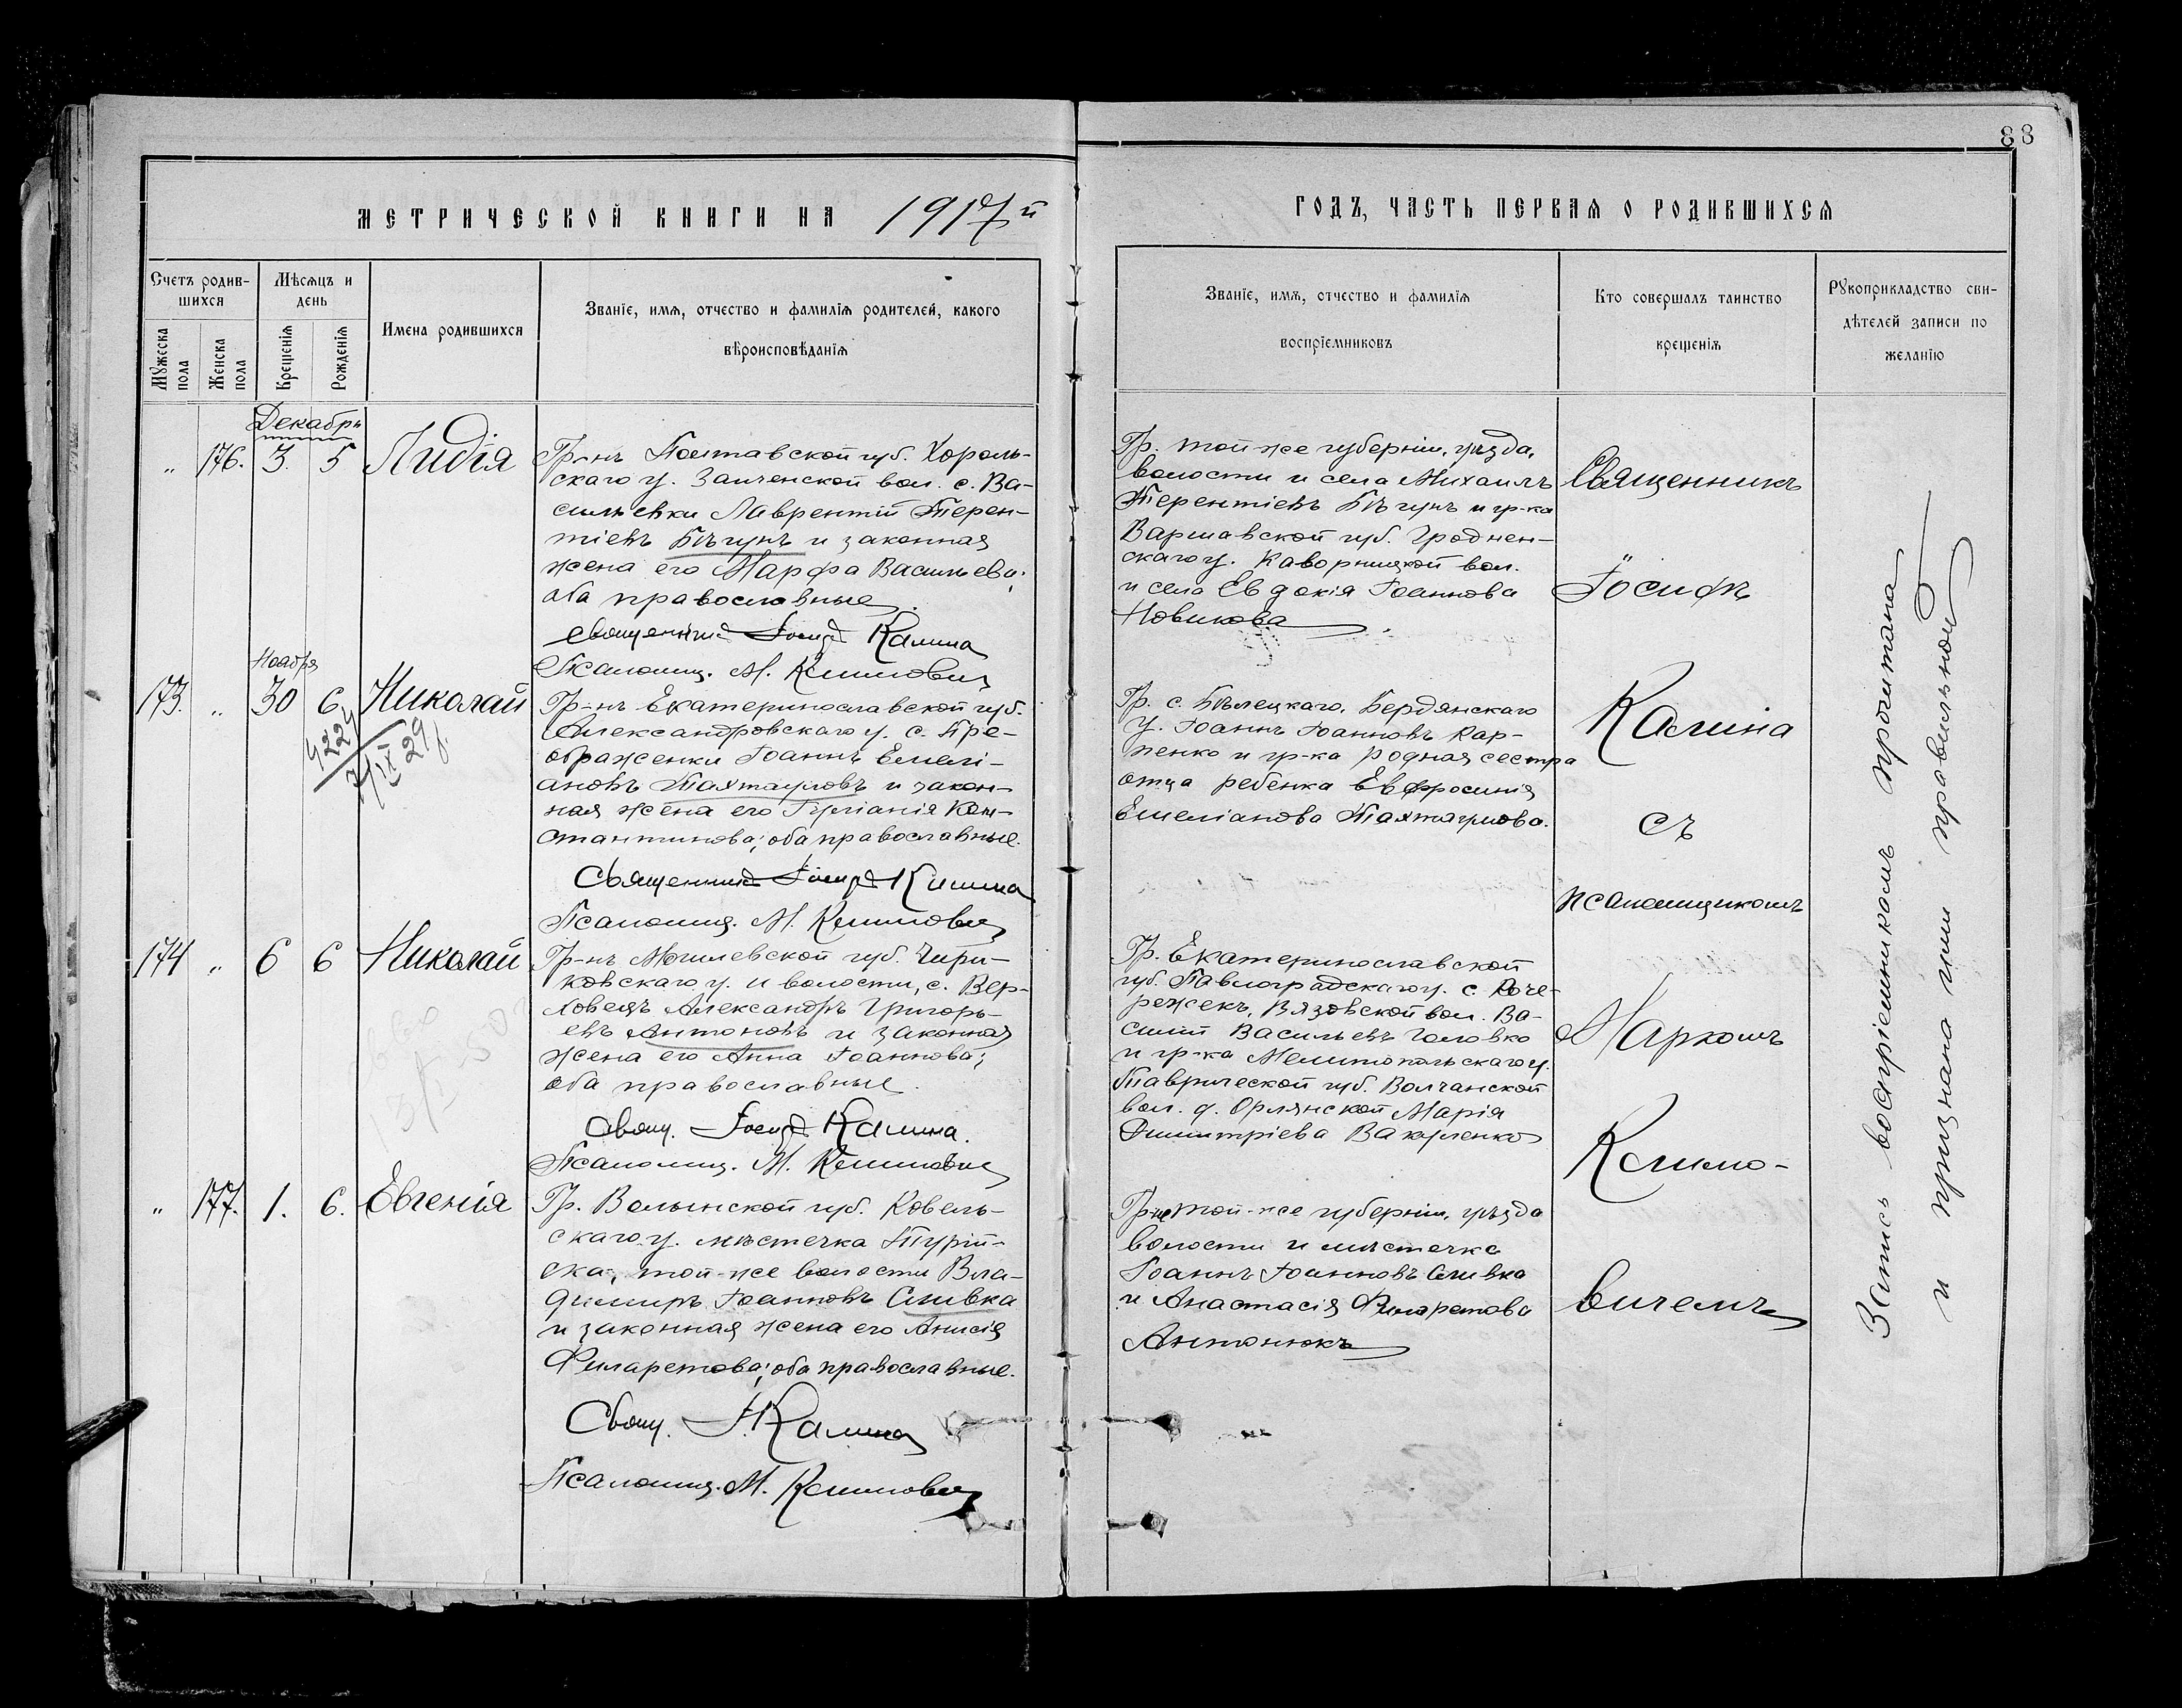 88
МЕТРИЧЕСКОЙ КНИГИ НА 1917й
ГОДЪ, ЧАСТЬ ПЕРВАЯ О РОДИВШИХСЯ
Счетъ родив-
шихся
Мужеска
пола
Женска
пола
Мѣсяцъ и
день
Крещенія
Рожденія
Имена родившихся
Званіе, имя, отчество и фамилія родителей, какого
вѣроисповѣданія
Званіе, имя, отчество и фамилія
воспріемниковъ
Кто совершалъ таинство
крещенія
Рукоприкладство сви-
дѣтелей записи по
желанію
Декабрь
„ 176. 3. 5 Лидія
Гр-нъ Полтавской губ. Хороль-
скаго у. Заиченской вол. с. Ва-
сильевки Лаврентій Терен-
тіевъ Бѣгунъ и законная
жена его Марфа Васильева;
оба православные.
Священникъ Іосифъ Калина
Псаломщ. М. Климовичъ
Гр. той же губерніи, уѣзда,
волости и села Михаилъ
Терентіевъ Бѣгунъ и гр-ка
Варшавской губ. Гроднен-
скаго у. вол.
и села Евдокія Іоаннова
Новикова
Ноября
173. „ 30 6 Николай
4224
7/IX 29
Гр-нъ Екатеринославской губ.
Александровскаго у. с. Пре-
ображенки Іоаннъ Емелі-
ановъ Тахтауловъ и закон-
ная жена его Іуліанія Кон-
стантинова; оба православные.
Священникъ Іосифъ Калина
Псаломщ. М. Климовичъ
Гр. с. Бѣлецкаго, Бердянскаго
у. Іоаннъ Іоанновъ Кар-
пенко и гр-ка родная сестра
отца ребенка Евфросинія
Емеліанова Тахтаулова.
174 „ 6 6 Николай
Гр-нъ Могилевской губ. Чери-
ковскаго у. и волости, с. Вер-
ховецъ Александръ Григорь-
евъ Антоновъ и законная
жена его Анна Іоаннова;
оба православные.
Свящ. Іосифъ Калина.
Псаломщ. М. Климовичъ
Гр. Екатеринославской
губ. Павлоградскаго у. с. Коче-
режекъ, Вязовской вол. Ва-
силій Васильевъ Головко
и гр-ка Мелитопольскаго у.
Таврической губ. Волчанской
вол. д. Орлянской Марія
Димитріева Вакуленко
„ 177. 1. 6. Евгенія
Гр. Волынской губ. Ковель-
скаго у. мѣстечка Турій-
ска, той-же волости Вла-
димиръ Іоанновъ Сливка
и законная жена его Анисія
Филаретова; оба православные.
Свящ. І. Калина
Псаломщ. М. Климовичъ
Гр-не той-же губерніи, уѣзда
волости и мѣстечка
Іоаннъ Іоанновъ Сливка
и Анастасія Филаретова
Антонюкъ
Священникъ
Іосифъ
Калина
съ
псаломщикомъ
Маркомъ
Климо-
вичемъ
Запись воспріемникомъ прочитана
и признана ими правильной